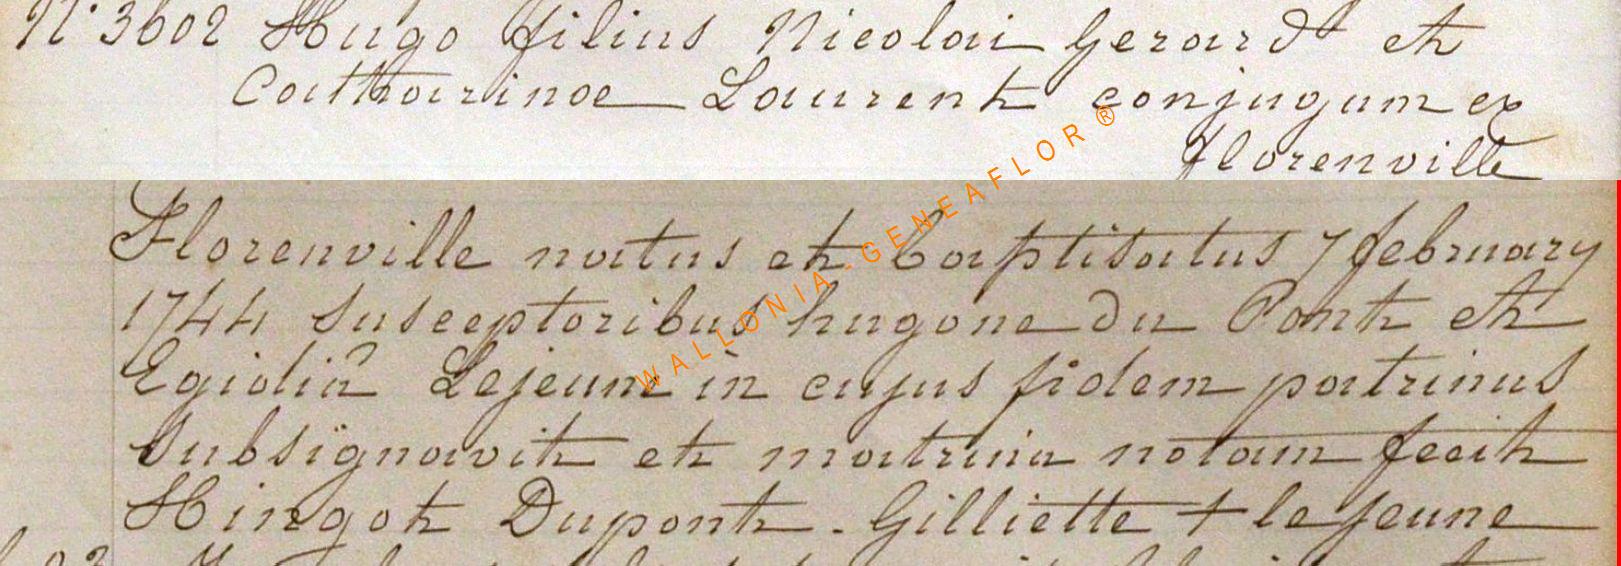 N° 3602 Hugo filius Nicolai Gerard et
Catharinae Laurent conjugum ex
florenville
Florenville natus et baptisatus 7 february
1744 Susceptoribus hugone du Pont et
Egidia Lejeune in cujus fidem patrinus
Subsignavit et matrina notam fecit
Hingot Dupont - Gilliette + le Jeune
WALLONIA-GENEAFLOR ®